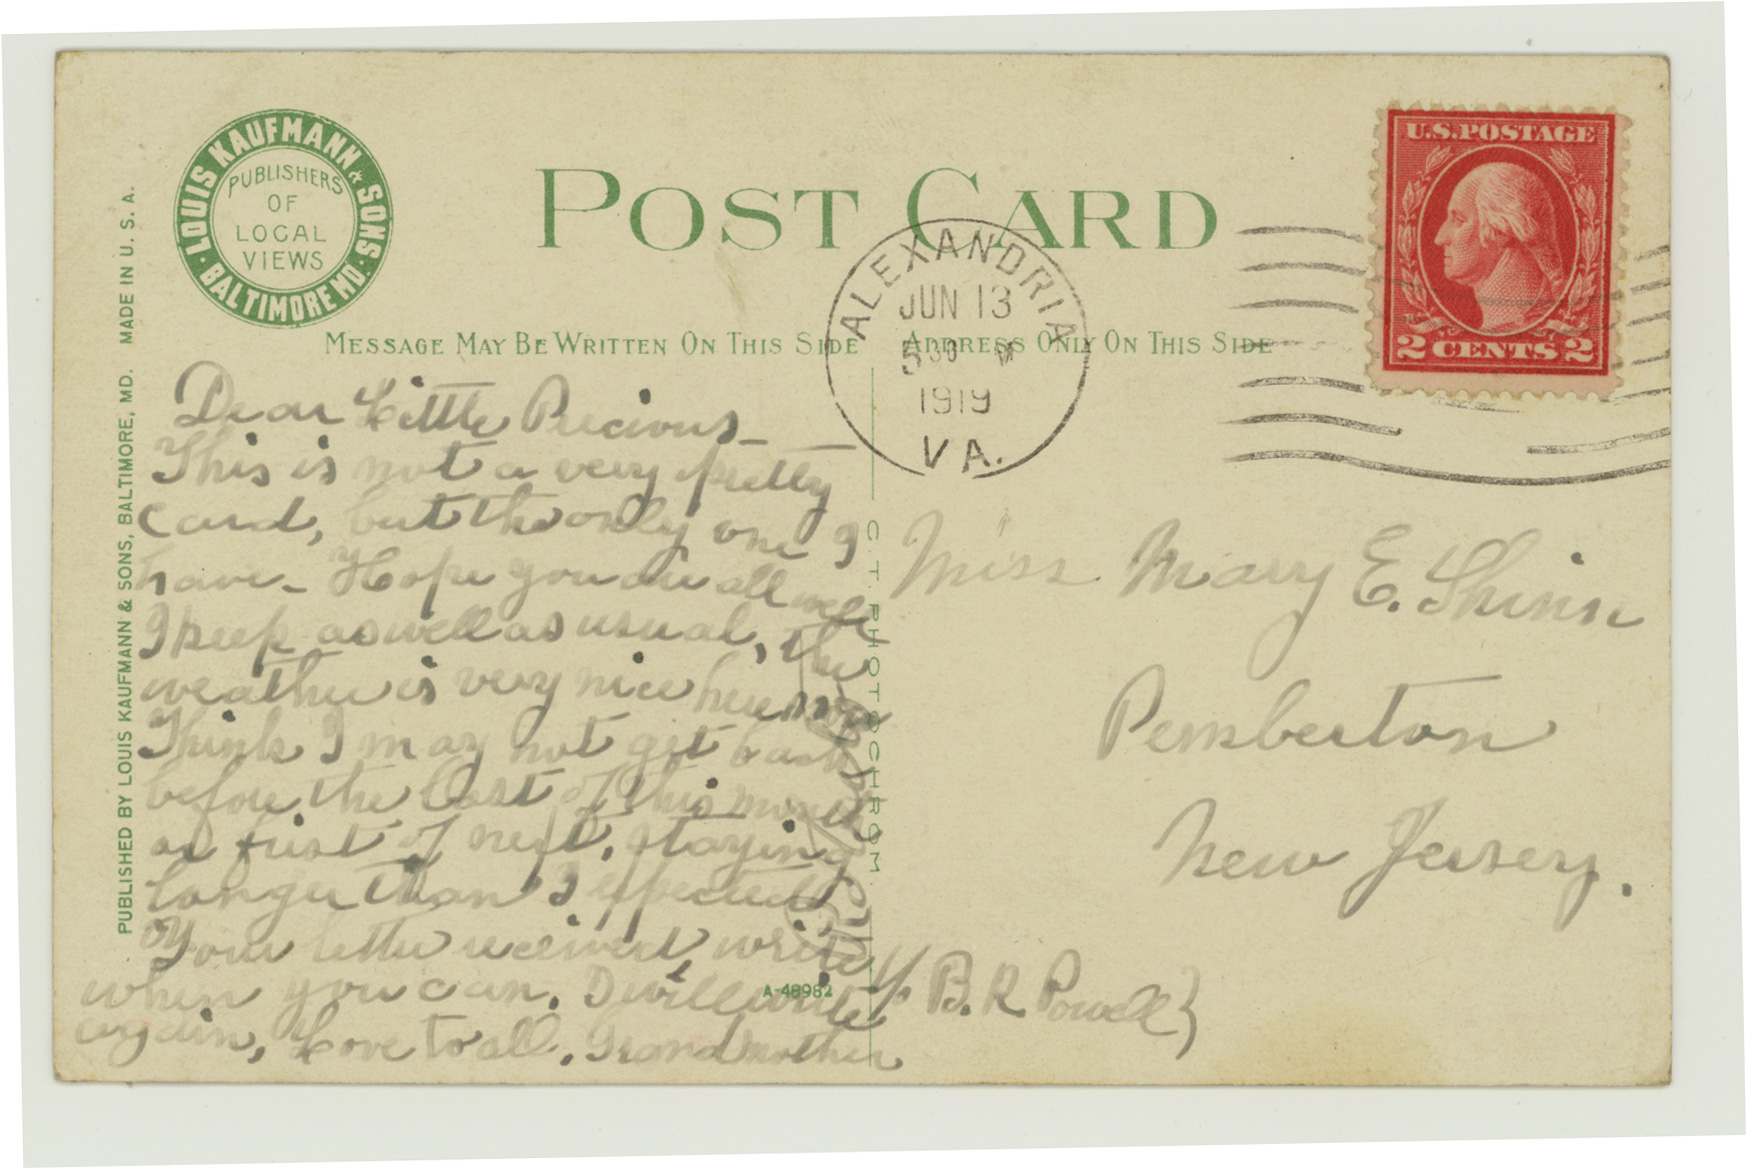 LOUIS KAUFMANN & SONS · BALTIMORE MD. ·
PUBLISHERS
OF
LOCAL
VIEWS
POST CARD
MESSAGE MAY BE WRITTEN ON THIS SIDE
ADDRESS ONLY ON THIS SIDE
PUBLISHED BY LOUIS KAUFMANN & SONS, BALTIMORE, MD. MADE IN U. S. A.
C. T. PHOTOCHROM
A-48982
U.S. POSTAGE
2 CENTS 2
ALEXANDRIA
JUN 13
5 30 M
1919
VA.
Dear Little Precious_
This is not a very pretty
card, but the only one I
have_ Hope you are all well
I keep as well as usual, the
weather is very nice here now
Think I may not get back
before the last of this month
or first of next, staying
longer than I expected
Your letter received, write
when you can. I will write
again, Love to all. Grandmother
Miss Mary E. Shinn
Pemberton
New Jersey.
% B. R. Powell}